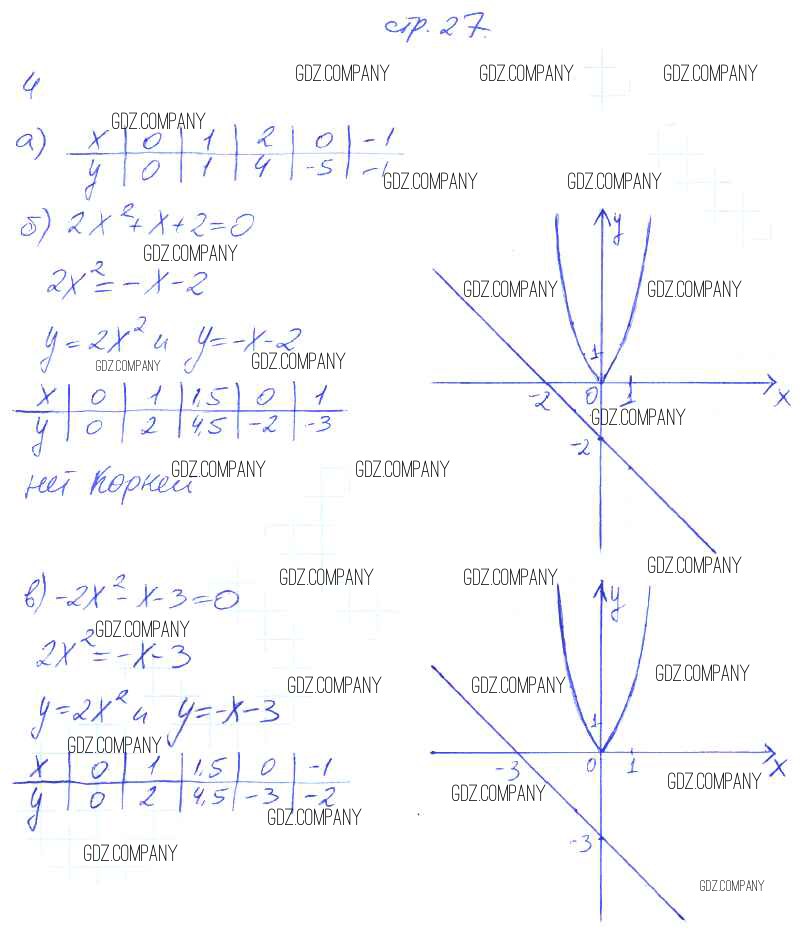 стр. 27.
GDZ.COMPANY GDZ.COMPANY GDZ.COMPANY
4
GDZ.COMPANY
а) x | 0 | 1 | 2 | 0 | -1
y | 0 | 1 | 4 | -5 | -1
GDZ.COMPANY GDZ.COMPANY
б) 2x²+x+2=0
GDZ.COMPANY
2x²=-x-2
GDZ.COMPANY GDZ.COMPANY
y=2x² и y=-x-2
GDZ.COMPANY GDZ.COMPANY
x | 0 | 1 | 1,5 | 0 | 1
y | 0 | 2 | 4,5 | -2 | -3
нет корней
GDZ.COMPANY GDZ.COMPANY
y
1
-2 0 1 x
GDZ.COMPANY
-2
GDZ.COMPANY
GDZ.COMPANY GDZ.COMPANY
в) -2x²-x-3=0
GDZ.COMPANY
2x²=-x-3
GDZ.COMPANY GDZ.COMPANY GDZ.COMPANY
y=2x² и y=-x-3
GDZ.COMPANY
x | 0 | 1 | 1,5 | 0 | -1
y | 0 | 2 | 4,5 | -3 | -2
GDZ.COMPANY
GDZ.COMPANY
y
1
-3 0 1 x
GDZ.COMPANY GDZ.COMPANY
-3
GDZ.COMPANY